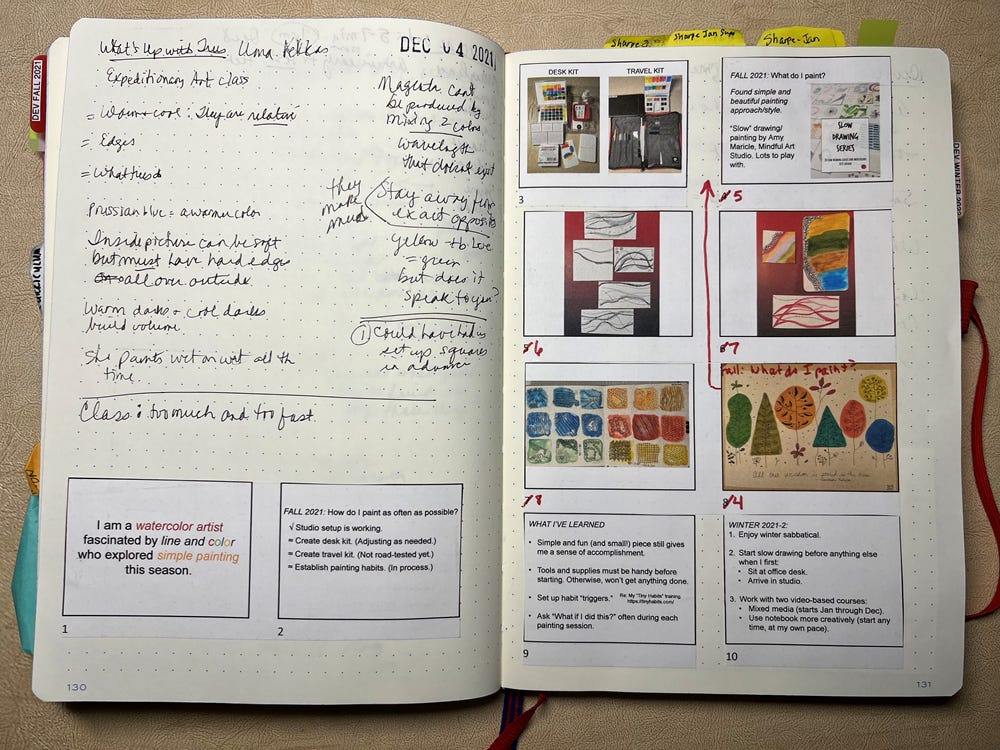 What's Up with Trees Uma Kelkar
DEC 04 2021
Expeditionary Art Class
= Warm + cool: They are relative
= Edges
Prussian blue = a warm color
Inside picture can be soft
but must have hard edges
all over outside
Warm darks + cool darks
build volume
She paints wet on wet all the
time.
Magenta can't
be produced by
mixing 2 colors
wavelength
that doesn't exist
they
make
mud
Stay away from
exact opposites
Yellow + blue
= green
but does it
speak to you?
① Could have had us
set up squares
in advance
Class: too much and too fast
I am a watercolor artist
fascinated by line and color
who explored simple painting
this season.
1
FALL 2021: How do I paint as often as possible?
√ Studio setup is working.
= Create desk kit. (Adjusting as needed.)
= Create travel kit. (Not road-tested yet.)
= Establish painting habits. (In process.)
2
130
DEV FALL 2021
Sharpe-Jan
DESK KIT
TRAVEL KIT
3
FALL 2021: What do I paint?
Found simple and
beautiful painting
approach/style.
"Slow" drawing/
painting by Amy
Maricle, Mindful Art
Studio. Lots to play
with.
SLOW
DRAWING
SERIES
5
6
7
8
Fall: What do I paint?
4
WHAT I'VE LEARNED
• Simple and fun (and small!) piece still gives
me a sense of accomplishment.
• Tools and supplies must be handy before
starting. Otherwise, won't get anything done.
• Set up habit "triggers."
Re: My "Tiny Habits" training
https://tinyhabits.com/
• Ask "What if I did this?" often during each
painting session.
9
WINTER 2021-2:
1. Enjoy winter sabbatical.
2. Start slow drawing before anything else
when I first:
• Sit at office desk.
• Arrive in studio.
3. Work with two video-based courses:
• Mixed media (starts Jan through Dec).
• Use notebook more creatively (start any
time, at my own pace).
10
131
DEV WINTER 2022